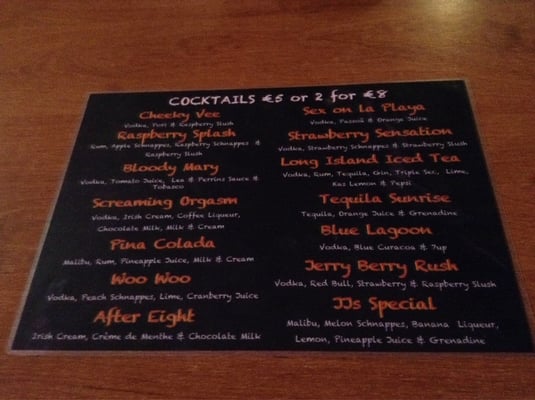 COCKTAILS €5 or 2 for €8
Cheeky Vee
Vodka, Port & Raspberry Slush
Raspberry Splash
Rum, Apple Schnappes, Raspberry Schnappes &
Raspberry Slush
Bloody Mary
Vodka, Tomato Juice, Lea & Perrins Sauce &
Tobasco
Screaming Orgasm
Vodka, Irish Cream, Coffee Liqueur,
Chocolate Milk, Milk & Cream
Pina Colada
Malibu, Rum, Pineapple Juice, Milk & Cream
Woo Woo
Vodka, Peach Schnappes, Lime, Cranberry Juice
After Eight
Irish Cream, Crème de Menthe & Chocolate Milk
Sex on La Playa
Vodka, Passoá & Orange Juice
Strawberry Sensation
Vodka, Strawberry Schnappes & Strawberry Slush
Long Island Iced Tea
Vodka, Rum, Tequila, Gin, Triple Sec, Lime,
Kas Lemon & Pepsi
Tequila Sunrise
Tequila, Orange Juice & Grenadine
Blue Lagoon
Vodka, Blue Curacoa & 7up
Jerry Berry Rush
Vodka, Red Bull, Strawberry & Raspberry Slush
JJs Special
Malibu, Melon Schnappes, Banana Liqueur,
Lemon, Pineapple Juice & Grenadine